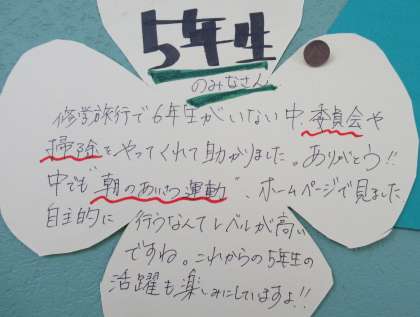 5年生
のみなさん
修学旅行で6年生がいない中、委員会や
掃除をやってくれて助かりました。ありがとう!!
中でも"朝のあいさつ運動"、ホームページで見ました
自主的に 行うなんてレベルが高い
ですね。これからの5年生の
活躍も楽しみにしていますよ!!